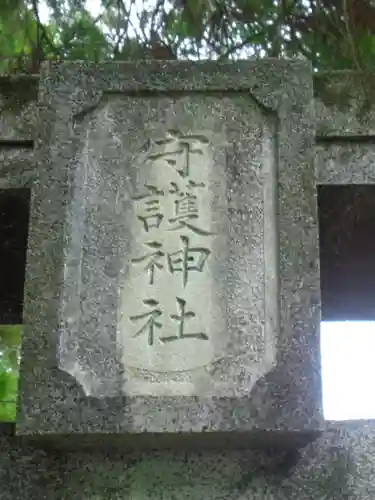 守護神社